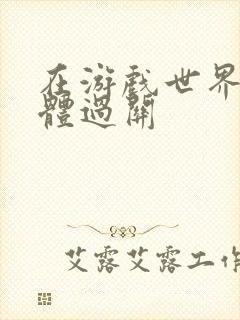 在游戏世界
體過關
艾露艾露工作